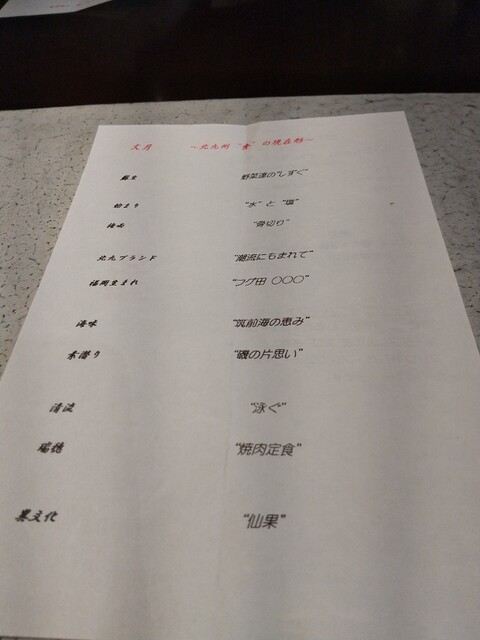 文月 ～北九州"食"の現在形～
蘇生 野菜達の"しずく"
始まり "水" と "塩"
"骨切り"
北九ブランド "潮流にもまれて"
福岡生まれ "フグ田 〇〇〇"
海味 "筑前海の恵み"
素潜り "磯の片思い"
清流 "泳ぐ"
瑞穂 "焼肉定食"
異文化 "仙果"